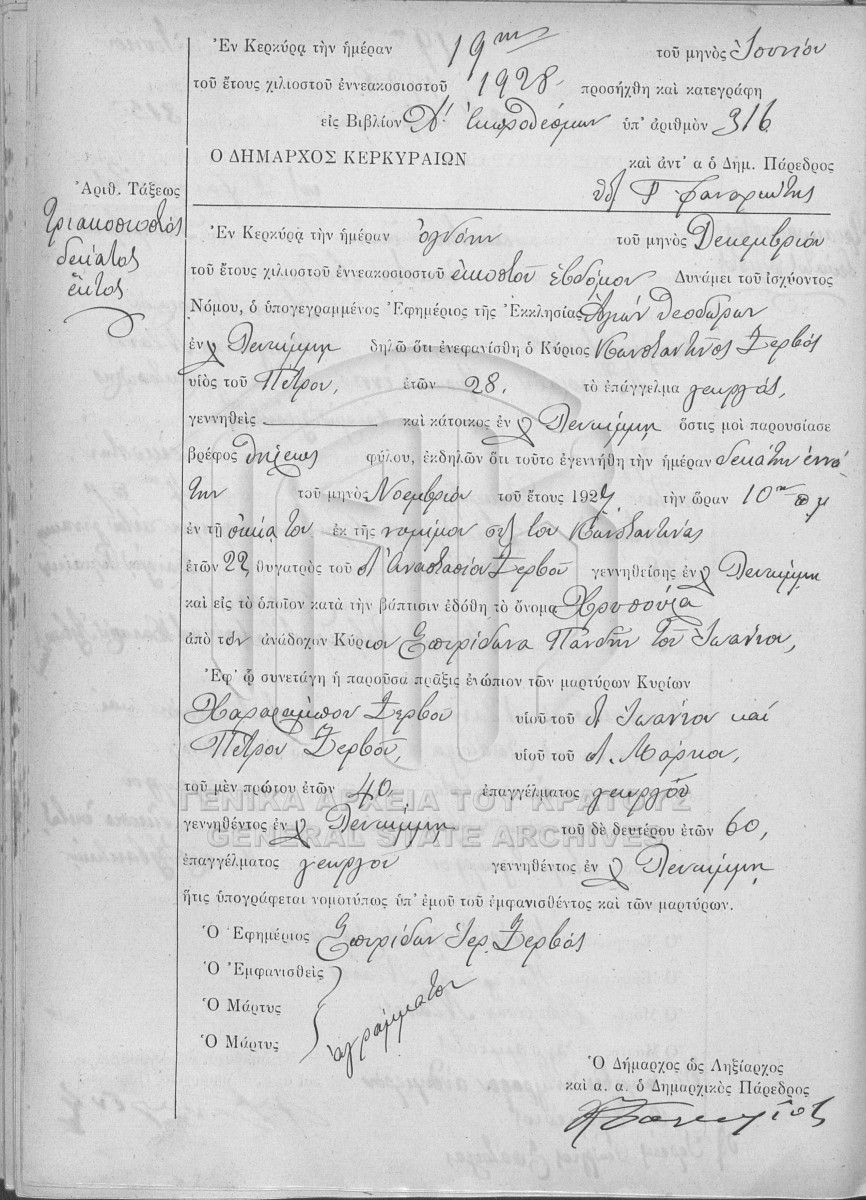 Ἐν Κερκύρᾳ τὴν ἡμέραν 19ην τοῦ μηνὸς Ἰουνίου
τοῦ ἔτους χιλιοστοῦ ἐννεακοσιοστοῦ 1928 προσήχθη καὶ κατεγράφη
εἰς Βιβλίον ἐκπροθέσμων ὑπ' ἀριθμὸν 316
Ο ΔΗΜΑΡΧΟΣ ΚΕΡΚΥΡΑΙΩΝ
καὶ ἀντ' α ὁ Δημ. Πάρεδρος
Ἀριθ. Τάξεως
τριακοσιοστὸς
δέκατος
ἕκτος
Ἐν Κερκύρᾳ τὴν ἡμέραν ὀγδόην τοῦ μηνὸς Δεκεμβρίου
τοῦ ἔτους χιλιοστοῦ ἐννεακοσιοστοῦ εἰκοστοῦ ἑβδόμου Δυνάμει τοῦ ἰσχύοντος
Νόμου, ὁ ὑπογεγραμμένος Ἐφημέριος τῆς Ἐκκλησίας Ἁγίων Θεοδώρων
ἐν Περιτ. δηλῶ ὅτι ἐνεφανίσθη ὁ Κύριος Κωνσταντῖνος Ζερβὸς
υἱὸς τοῦ Πέτρου, ἐτῶν 28. τὸ ἐπάγγελμα γεωργός,
γεννηθεὶς καὶ κάτοικος ἐν ὅστις μοὶ παρουσίασε
βρέφος θήλεως φύλου, ἐκδηλῶν ὅτι τοῦτο ἐγεννήθη τὴν ἡμέραν δεκάτην ἐννά
την τοῦ μηνὸς Νοεμβρίου τοῦ ἔτους 1927 τὴν ὥραν 10ην π.μ
ἐν τῇ οἰκίᾳ του ἐκ τῆς νομίμου συζ του Κωνσταντίνας
ἐτῶν 22 θυγατρὸς τοῦ Ἀναστασίου Ζερβοῦ γεννηθείσης ἐν
καὶ εἰς τὸ ὁποῖον κατὰ τὴν βάπτισιν ἐδόθη τὸ ὄνομα Χρυσούλα
ἀπὸ τὸν ἀνάδοχον Κύριον Σπυρίδωνα Πανδὴν τοῦ Ἰωάννου,
Ἐφ' ᾧ συνετάγη ἡ παροῦσα πρᾶξις ἐνώπιον τῶν μαρτύρων Κυρίων
Χαραλάμπου Ζερβοῦ υἱοῦ τοῦ Ἰωάννου καὶ
Πέτρου Ζερβοῦ, υἱοῦ τοῦ Μάρκου,
τοῦ μὲν πρώτου ἐτῶν 40 ἐπαγγέλματος γεωργοῦ
ΓΕΝΙΚΑ ΑΡΧΕΙΑ ΤΟΥ ΚΡΑΤΟΥΣ
γεννηθέντος ἐν τοῦ δὲ δευτέρου ἐτῶν 60,
GENERAL STATE ARCHIVES
ἐπαγγέλματος γεωργοῦ γεννηθέντος ἐν
ἥτις ὑπογράφεται νομοτύπως ὑπ' ἐμοῦ τοῦ ἐμφανισθέντος καὶ τῶν μαρτύρων.
Ὁ Ἐφημέριος Σπυρίδων Ἱερ. Ζερβὸς
Ὁ Ἐμφανισθεὶς
Ὁ Μάρτυς
Ὁ Μάρτυς
ἀγράμματοι
Ὁ Δήμαρχος ὡς Ληξίαρχος
καὶ α. α. ὁ Δημαρχικὸς Πάρεδρος